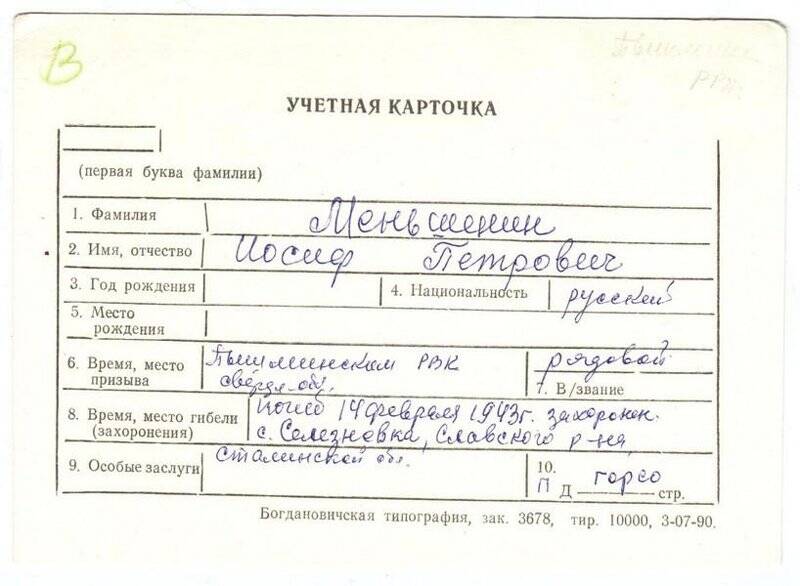 В
Пышминским
РВК
УЧЕТНАЯ КАРТОЧКА
(первая буква фамилии)
1. Фамилия Меньшенин
2. Имя, отчество Иосиф Петрович
3. Год рождения 4. Национальность русский
5. Место рождения
6. Время, место призыва Пышминским РВК
Свердл. обл.
рядовой
7. В/звание
8. Время, место гибели (захоронения) погиб 14 февраля 1943г. захоронен
с. Селезновка, Славского р-на,
9. Особые заслуги Сталинской обл.
10.
П Д горсо стр.
Богдановичская типография, зак. 3678, тир. 10000, 3-07-90.